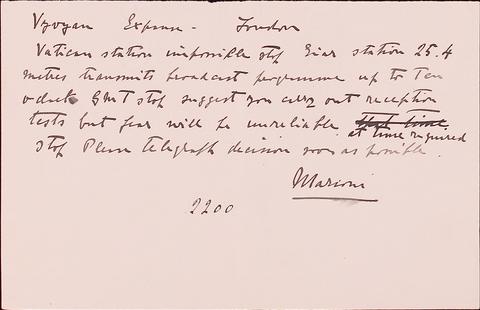 Vyvyan Express - London
Vatican station impossible stop Eiar station 25.4
metres transmits broadcast programme up to Ten
o'clock GMT stop suggest you carry out reception
tests but fear will be unreliable at time required
stop Please telegraph decision soon as possible.
Marconi
2200